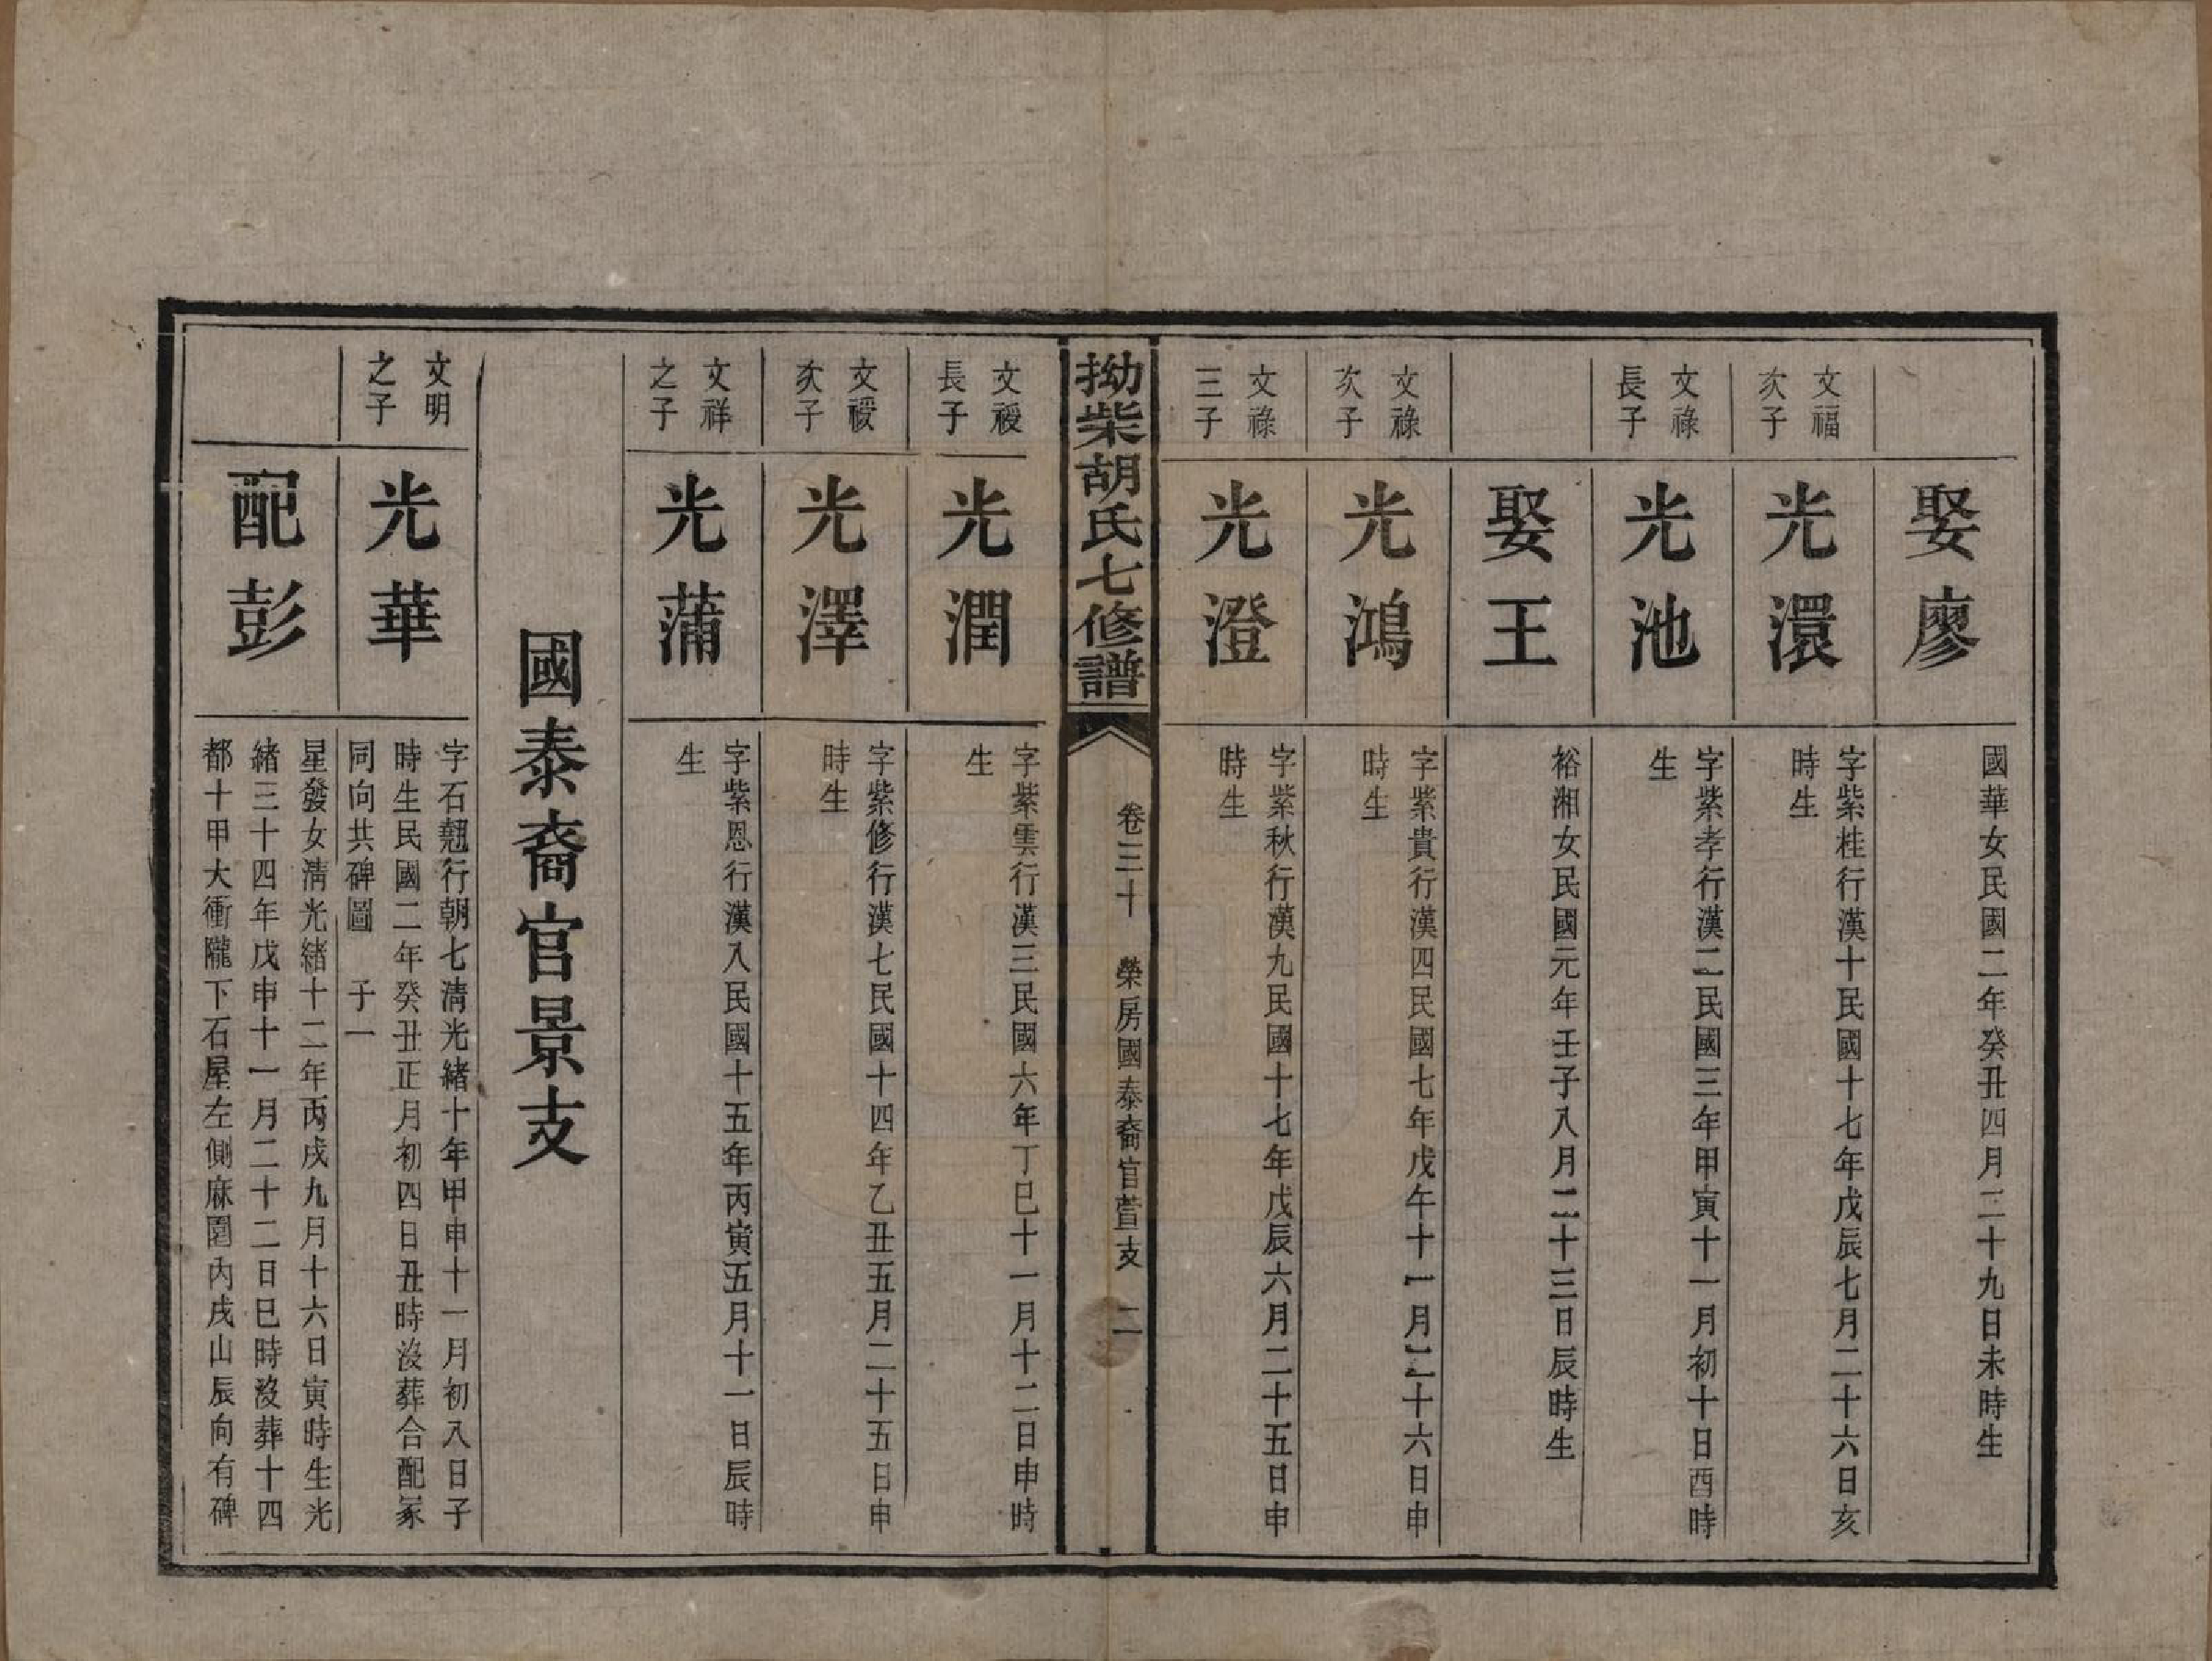 娶廖
國華女民國二年癸丑四月二十九日未時生
文福
次子
光澴
字紫桂行漢十民國十七年戊辰七月二十六日亥
時生
文祿
長子
光池
字紫孝行漢二民國三年甲寅十一月初十日酉時
生
娶王
裕湘女民國元年壬子八月二十三日辰時生
文祿
次子
光鴻
字紫貴行漢四民國七年戊午十一月二十六日申
時生
文祿
三子
光澄
字紫秋行漢九民國十七年戊辰六月二十五日申
時生
拗柴胡氏七修譜
卷三十 榮房國泰裔官萱支 二
文禐
長子
光潤
字紫雲行漢三民國六年丁巳十一月十二日申時
生
文禐
次子
光澤
字紫修行漢七民國十四年乙丑五月二十五日申
時生
文祥
之子
光蒲
字紫恩行漢八民國十五年丙寅五月十一日辰時
生
國泰裔官景支
文明
之子
光華
字石翹行朝七淸光緒十年甲申十一月初八日子
時生民國二年癸丑正月初四日丑時歿葬合配冢
同向共碑圖 子一
配彭
星發女淸光緒十二年丙戌九月十六日寅時生光
緒三十四年戊申十一月二十二日巳時歿葬十四
都十甲大衝隴下石屋左側麻園內戌山辰向有碑